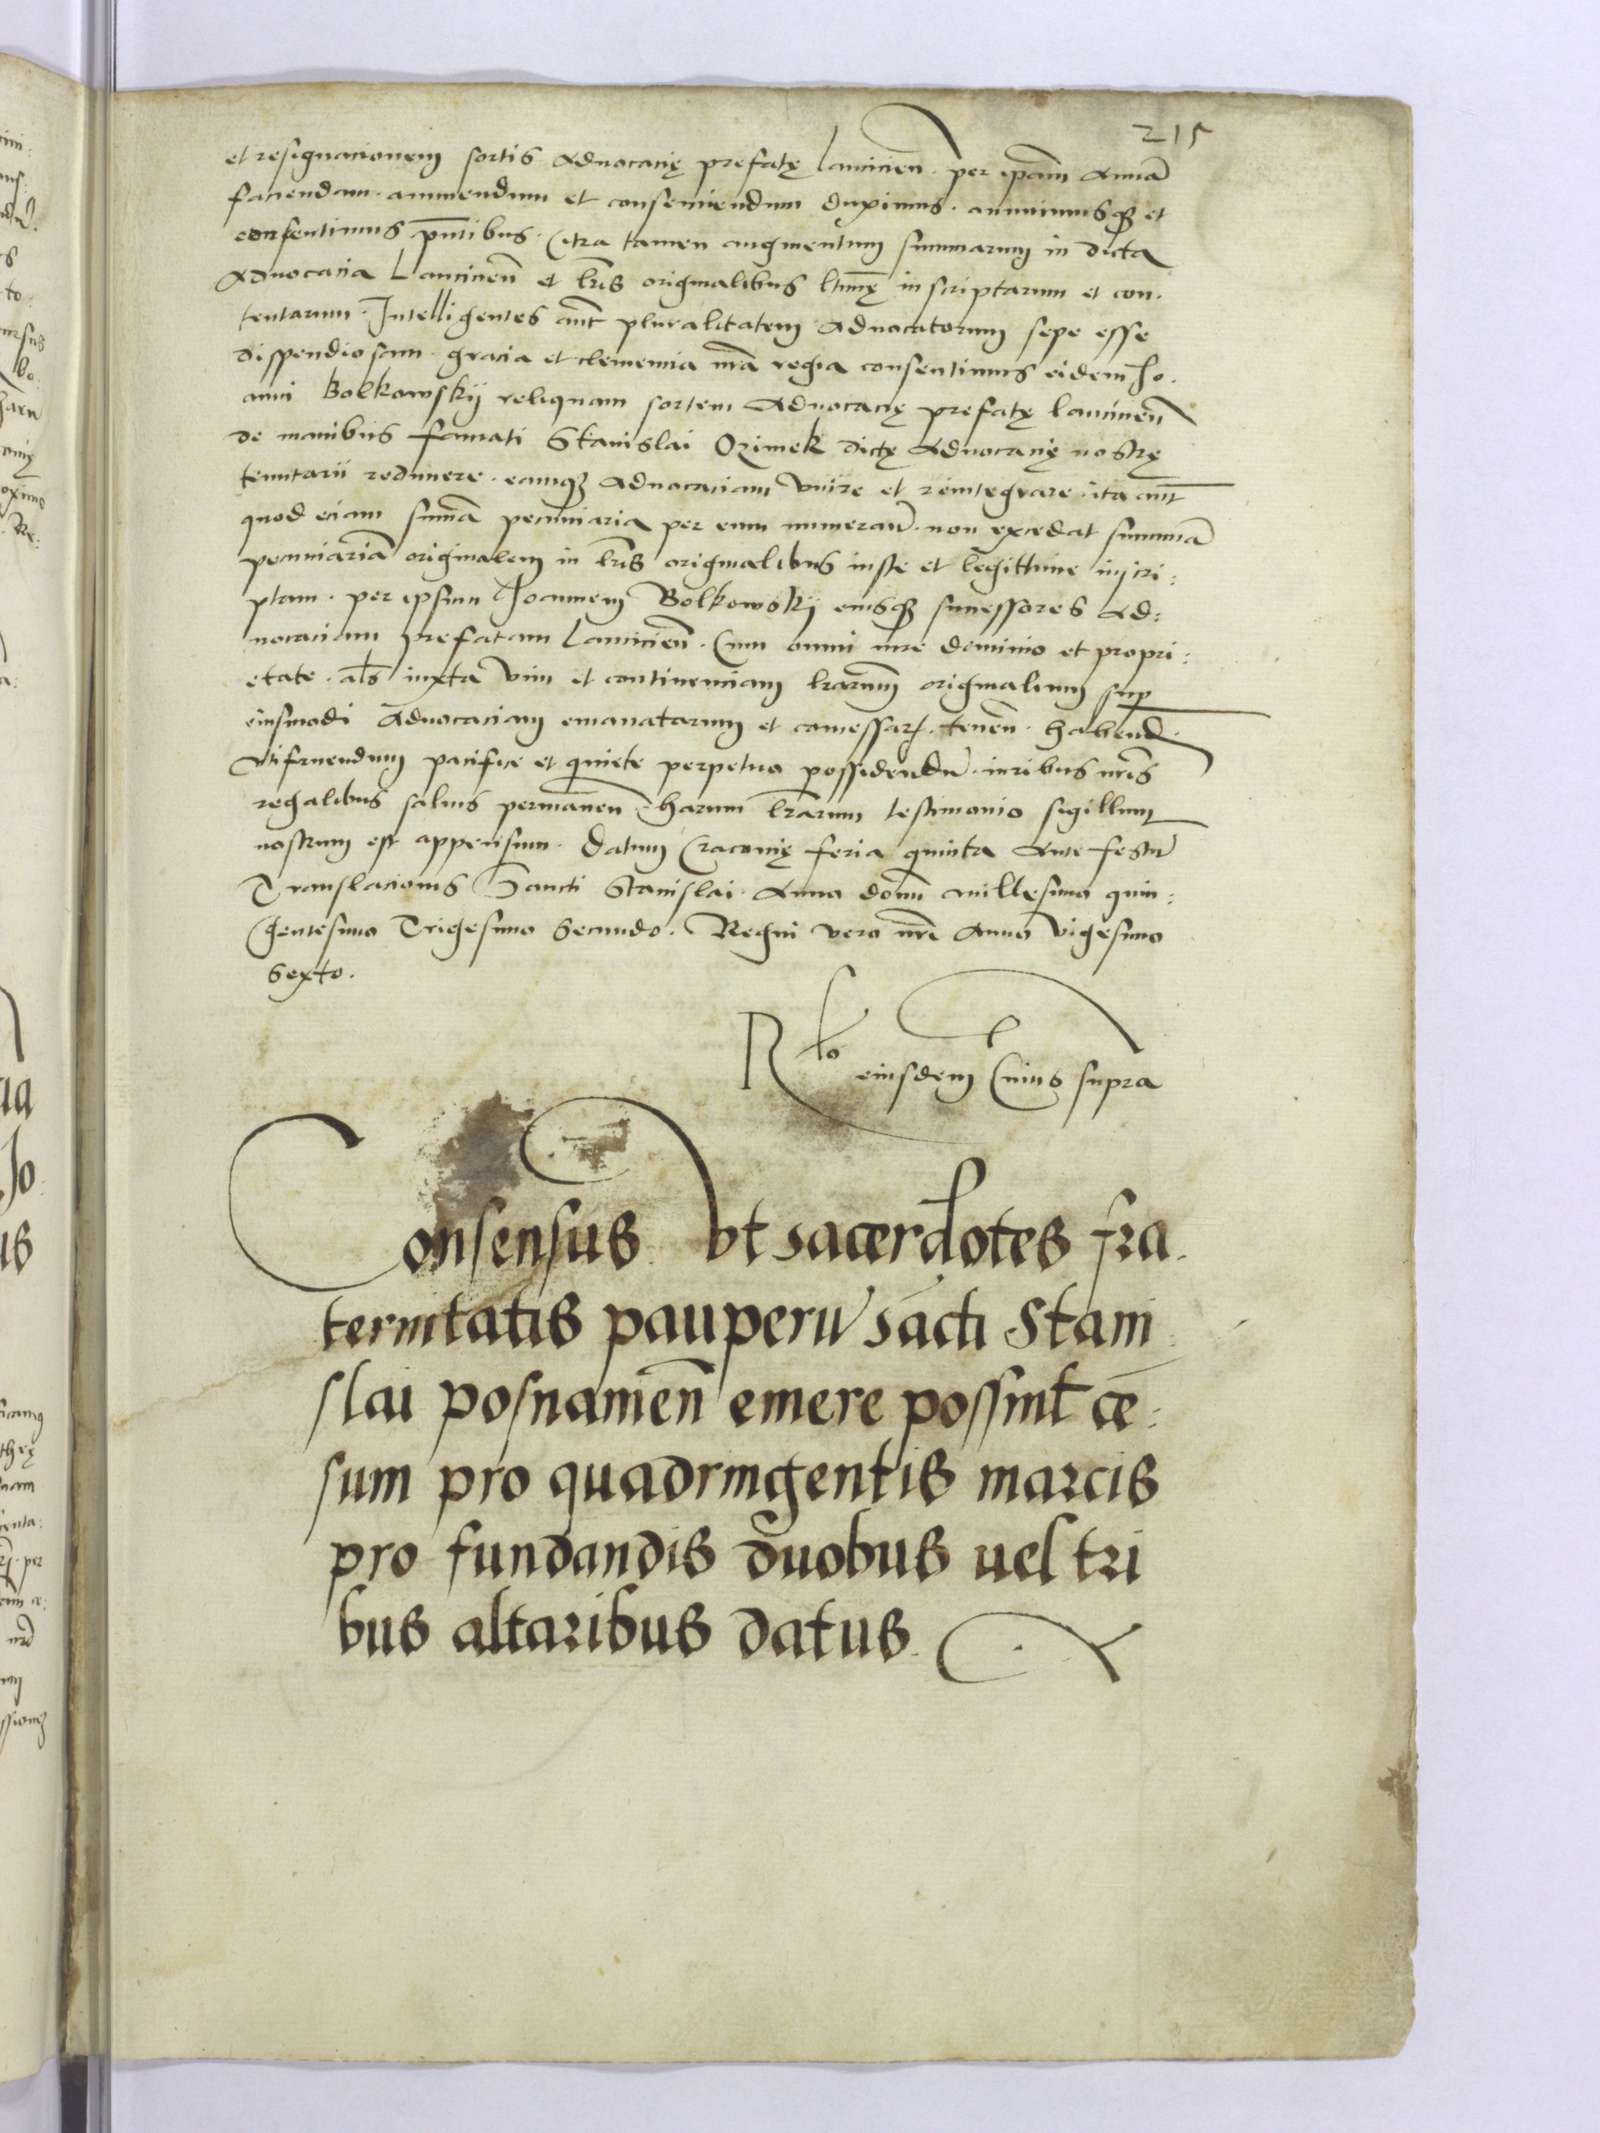 215
et resignacionem sortis Advocacię prefatę Lancicien̄. per ip̄am Annā
faciendam. annuendum et consenciendum duximus. annuimusq₃ et
consentimus p̄ntibus. Citra tamen augmentum summarum in dicta
Advocacia Lancicien̄ et lr̄is originalibus inscriptarum et con.
tentarum. Intelligentes aūt pluralitatem Advocatorum sepe esse
dispendiosam. gracia et clemencia nr̄a regia consentimus eidem Jo.
anni Bolkowskÿ reliquam sortem Advocacię prefatę lancicien̄
de manibus famati Stanislai Ozimek dictę Advocacię nostrę
tenutarii redimere. eamq₃ Advocaciam vnire et reintegrare ita aūt
quod eciam summā pecuniaria per eum numeran̄. non excedat summā
pecuniariā originalem in lr̄is originalibus iuste et legittime inscri:
ptam. per ipsum Joannem Bolkowskÿ eiusq₃ successores Ad:
vocaciam prefatam Lancicien̄. Cum omni iure dominio et propri:
etate. al̄s iuxta vim et continenciam lr̄arum originalium sup̱
eiusmodi Advocaciam emanatarum et concessarꝝ. tenen̄. habend̄.
vtifruendum pacifice et quiete perpetuo possidendū. iuribus nr̄is
regalibus saluis permanen̄. harum lr̄arum testimonio sigillum
nostrum est appensum. Datum Cracovię feria quinta Ante festū
Translacionis Sancti Stanislai. Anno domī millesimo quin:
gentesimo Trigesimo Secundo. Regni vero nr̄i Anno Vigesimo
Sexto.
Rlo eiusdem Cuius supra
Consensus vt sacerdotes fra.
ternitatis pauperū sācti Stani
slai posnanien̄ emere possint cē:
sum pro quadringentis marcis
pro fundandis duobus uel tri
bus altaribus datus.